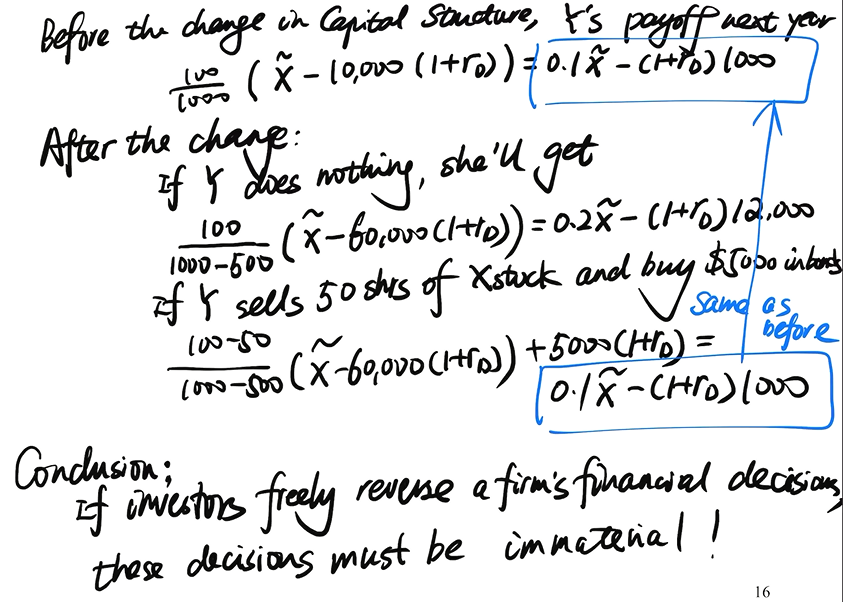 Before the change in Capital Structure, Y's payoff next year
100/1000 ( X̃ - 10,000 (1+r_D) ) = 0.1X̃ - (1+r_D)1000
After the change:
If Y does nothing, she'll get
100/(1000-500) ( X̃ - 60,000(1+r_D) ) = 0.2X̃ - (1+r_D)12,000
If Y sells 50 shrs of X stock and buy $5000 in bonds
Same as
before
(100-50)/(1000-500) ( X̃ - 60,000(1+r_D) ) + 5000(1+r_D) =
0.1X̃ - (1+r_D)1000
Conclusion;
If investors freely reverse a firm's financial decisions,
these decisions must be immaterial!
16